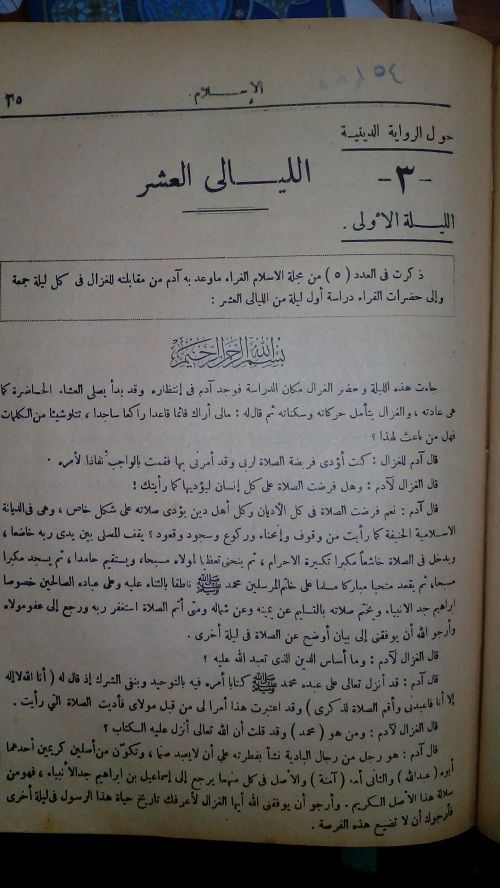 الإسلام
٣٥
حول الرواية الدينية
- ٣ -
الليالى العشر
الليلة الأولى .
ذكرت فى العدد ( ٥ ) من مجلة الاسلام الغراء ماوعد به آدم من مقابلته للغزال فى كل ليلة جمعة
وإلى حضرات القراء دراسة أول ليلة من الليالى العشر :
بسم الله الرحمن الرحيم
جاءت هذه الليلة وحضر الغزال مكان الدراسة فوجد آدم فى إنتظاره وقد بدأ يصلى العشاء الحاضرة كما
هى عادته ، والغزال يتأمل حركاته وسكناته ثم قال له : مالى أراك قائما قاعدا راكعا ساجدا ، تتلو شيئا من الكلمات
فهل من باعث لهذا ؟
قال آدم للغزال : كنت أؤدى فريضة الصلاة لربى وقد أمرنى بها فقمت بالواجب نفاذا لأمره .
قال الغزال لآدم : وهل فرضت الصلاة على كل إنسان ليؤديها كما رأيتك !
قال آدم : نعم فرضت الصلاة فى كل الأديان وكل أهل دين يؤدى صلاته على شكل خاص ، وهى فى الديانة
الاسلامية الحنيفة كما رأيت من وقوف وإنحناء وركوع وسجود وقعود ؟ يقف المصلى بين يدى ربه خاضعا ،
ويدخل فى الصلاة خاشعاً مكبرا تكبيرة الاحرام ، ثم ينحنى تعظيما لمولاه مسبحا، ويستقيم حامدا ، ثم يسجد مكبرا
مسبحا، ثم يقعد متحيا مباركا مسلما على خاتم المرسلين محمد ﷺ ناطقا بالثناء عليه وعلى عباده الصالحين خصوصا
ابراهيم جد الانبياء ويختم صلاته بالتسليم عن يمينه وعن شماله ومتى أتم الصلاة استغفر ربه ورجع إلى عفو مولاه
وأرجو الله أن يوفقنى إلى بيان أوضح عن الصلاة فى ليلة أخرى .
قال الغزال لآدم : وما أساس الدين الذى تعبد الله عليه ؟
قال آدم : قد أنزل تعالى على عبده محمد ﷺ كتابا أمره فيه بالتوحيد وبنفى الشرك إذ قال له ( أنا الله لا إله
إلا أنا فاعبدنى وأقم الصلاة لذكرى ) وقد اعتبرت هذا أمرا لى من قبل مولاى فأديت الصلاة التى رأيت .
قال الغزال لآدم : ومن هو ( محمد ) وقد قلت أن الله تعالى أنزل عليه الكتاب ؟
قال آدم : هو رجل من رجال البادية نشأ بفطرته على أن لايعبد صنما ، وتكوّن من أصلين كريمين أحدهما
أبوه ( عبد الله ) والثانى أمه ( آمنة ) والأصل فى كل منهما يرجع إلى إسماعيل بن ابراهيم جد الأنبياء ، فهو من
سلالة هذا الأصل الكريم . وأرجو أن يوفقنى الله أيها الغزال لأعرفك تاريخ حياة هذا الرسول فى ليلة أخرى
فأرجوك أن لا تضيع هذه الفرصة .